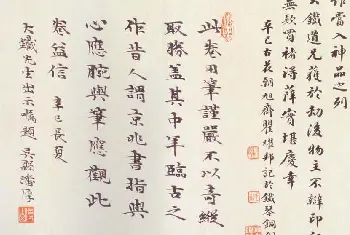 作雷入神品之列
大鐵道兄蒐於劫後物主不辯印記
無款賈褚得萍實堪慶幸
辛巳古花朝旭齋瞿熾邦記於鐵琴銅
此卷用筆謹嚴不以奇縱
取勝蓋其中年臨古之
作昔人謂京兆書指與
心應腕與筆應觀此
卷益信 辛巳長夏
大鐵先生出示嘱題 吳縣潘厚